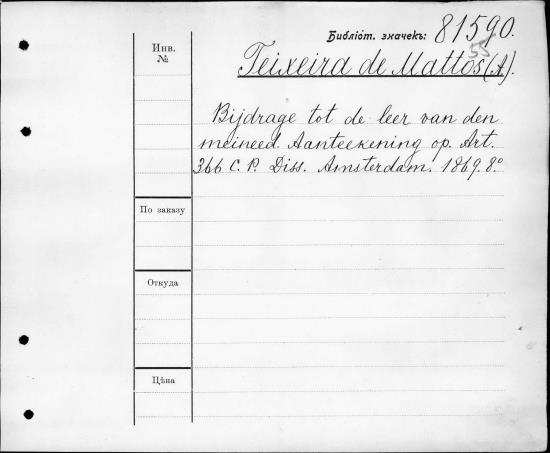 Библіот. значекъ: 81590.
55
Инв.
№
Teixeira de Mattos (A).
Bijdrage tot de leer van den
meineed Aanteekening op. Art.
366 C. P. Diss. Amsterdam. 1869. 8º
По заказу
Откуда
Цѣна